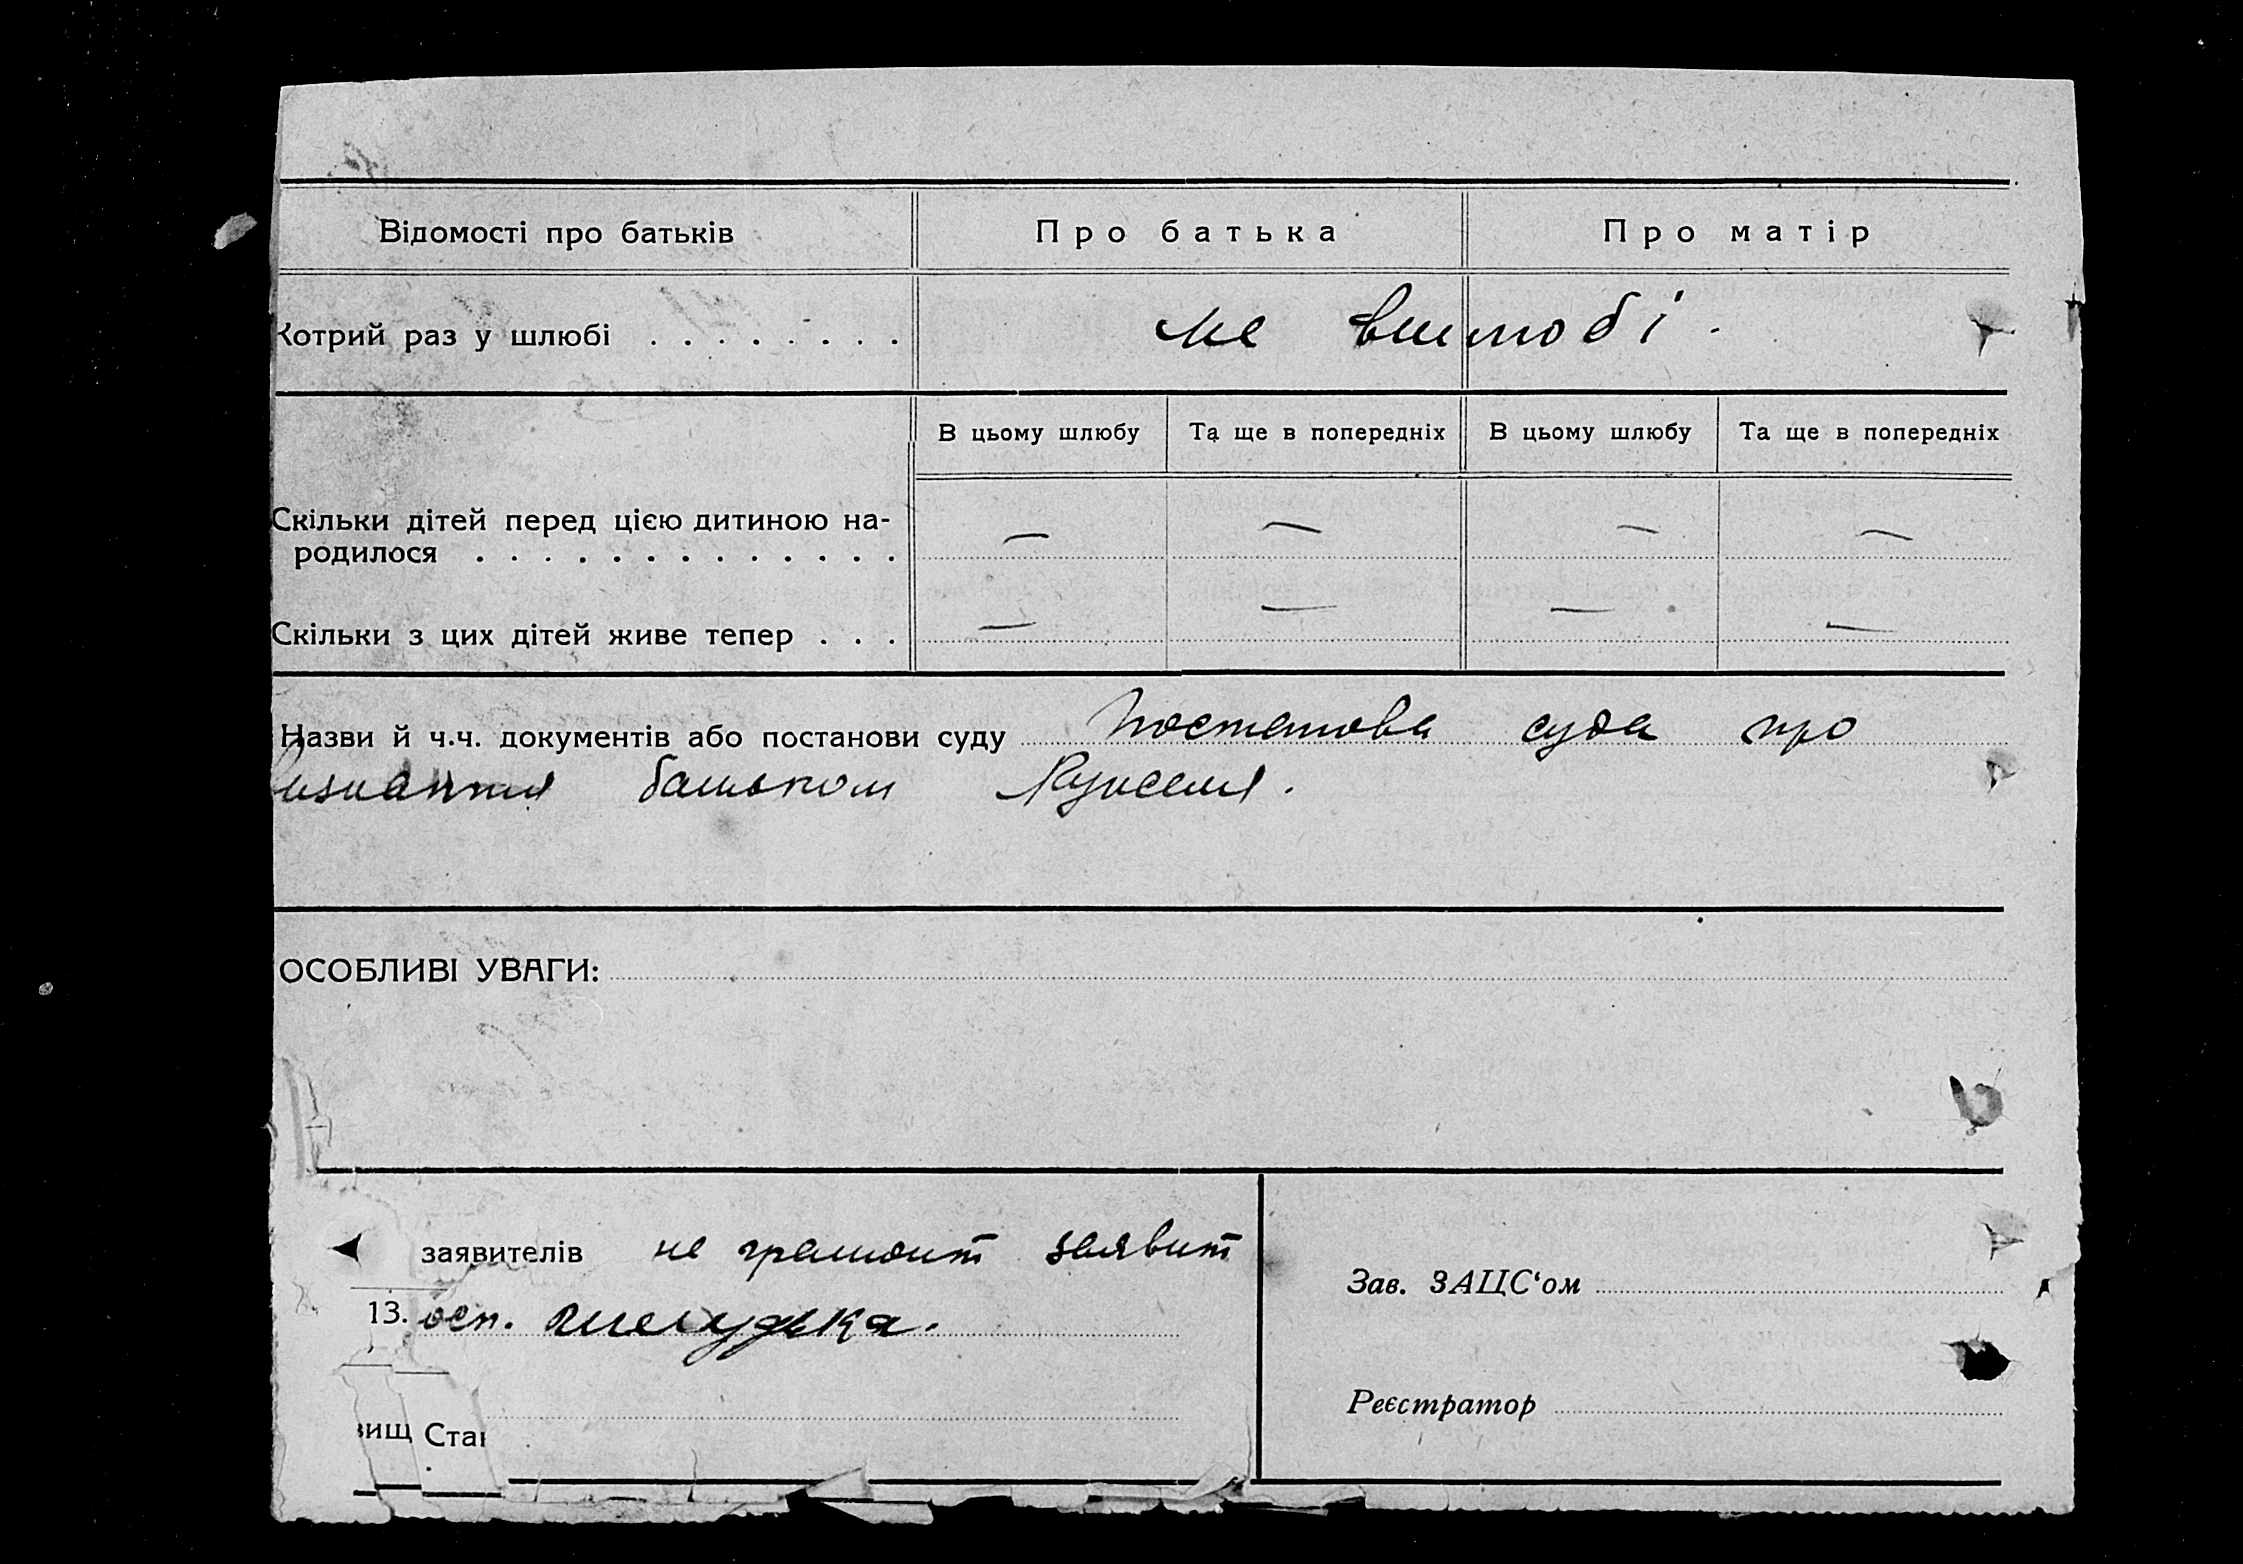 Відомості про батьків Про батька Про матір
Котрий раз у шлюбі . . . . . . . . не вшлюбі.
В цьому шлюбу Та ще в попередніх В цьому шлюбу Та ще в попередніх
Скільки дітей перед цією дитиною на- — — — —
родилося . . . . . . . . . . . . .
Скільки з цих дітей живе тепер . . . — — — —
Назви й ч.ч. документів або постанови суду Постанова суда про
визнання батьком
ОСОБЛИВІ УВАГИ:
заявителів не грамот заявит
Зав. ЗАЦС‘ом
13. осп.
Реєстратор
вищ Ста